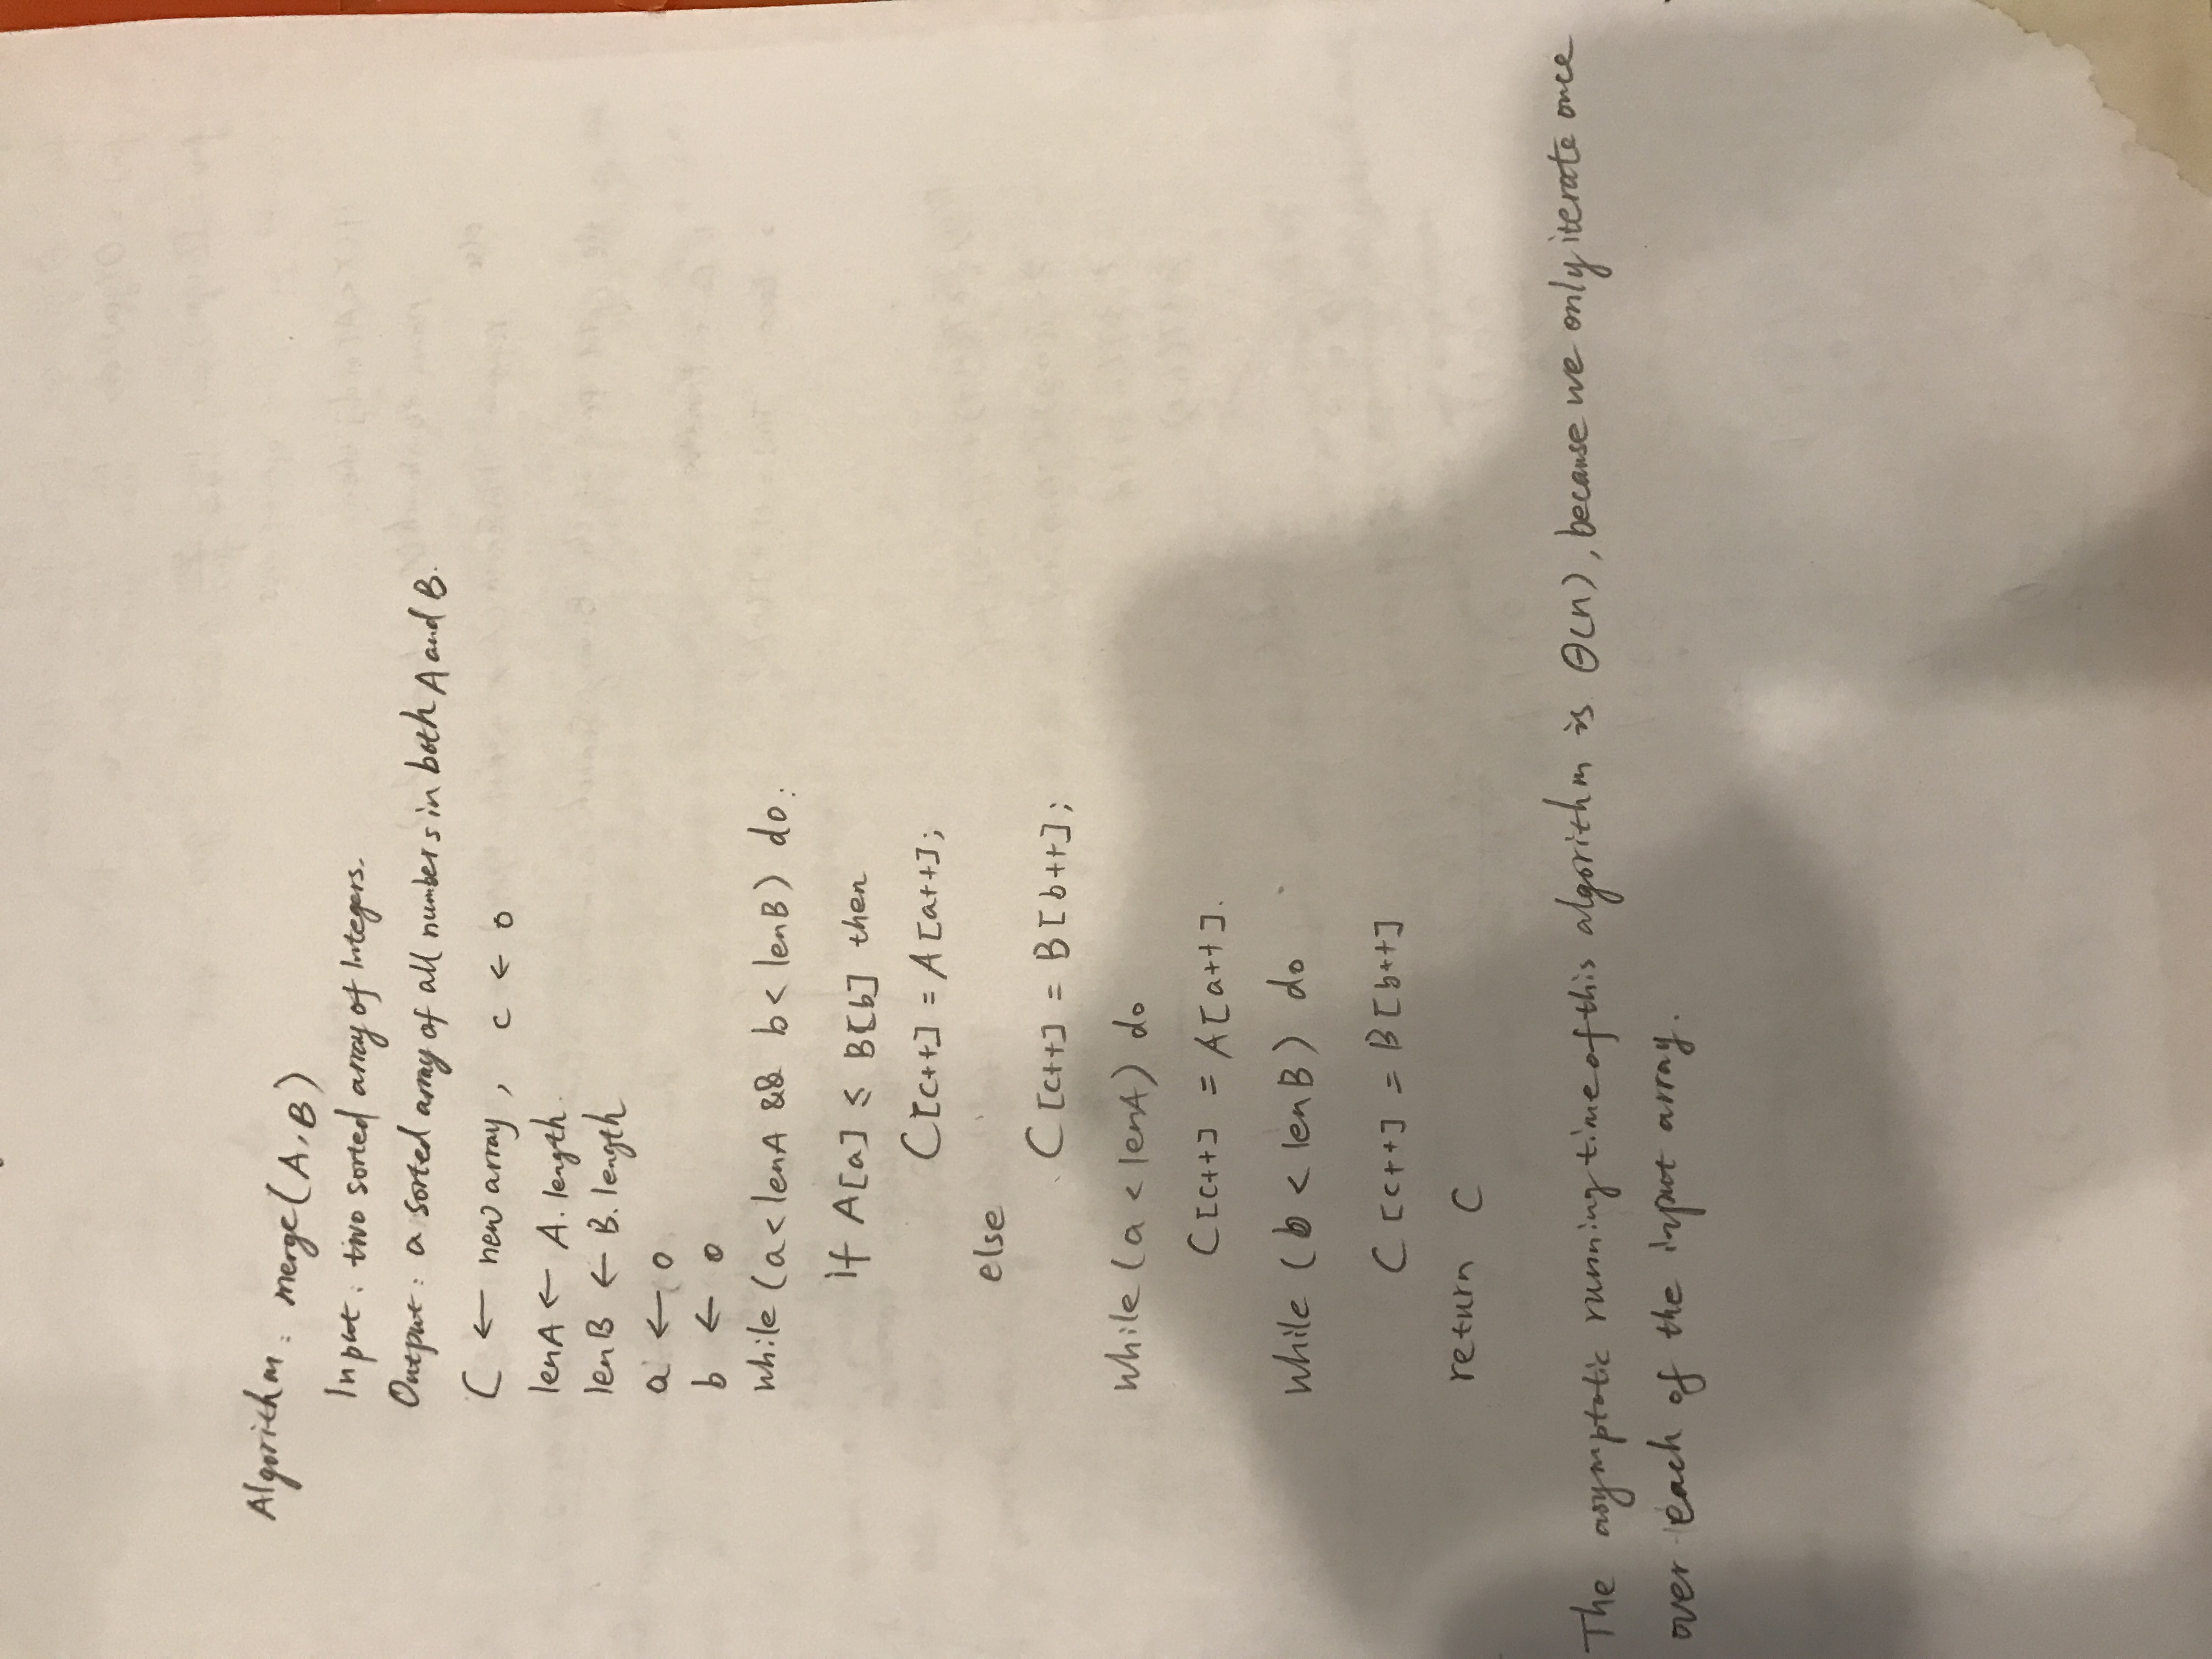 Algorithm: merge(A,B)
Input: two sorted array of Integers.
Output: a sorted array of all numbers in both A and B.
C ← new array, c ← 0
lenA ← A.length.
lenB ← B.length
a ← 0
b ← 0
while (a < lenA && b < lenB) do:
if A[a] ≤ B[b] then
C[c++] = A[a++];
else
C[c++] = B[b++];
while (a < lenA) do
C[c++] = A[a++].
while (b < lenB) do
C[c++] = B[b++]
return C
The asymptotic running time of this algorithm is Θ(n), because we only iterate once
over each of the input array.